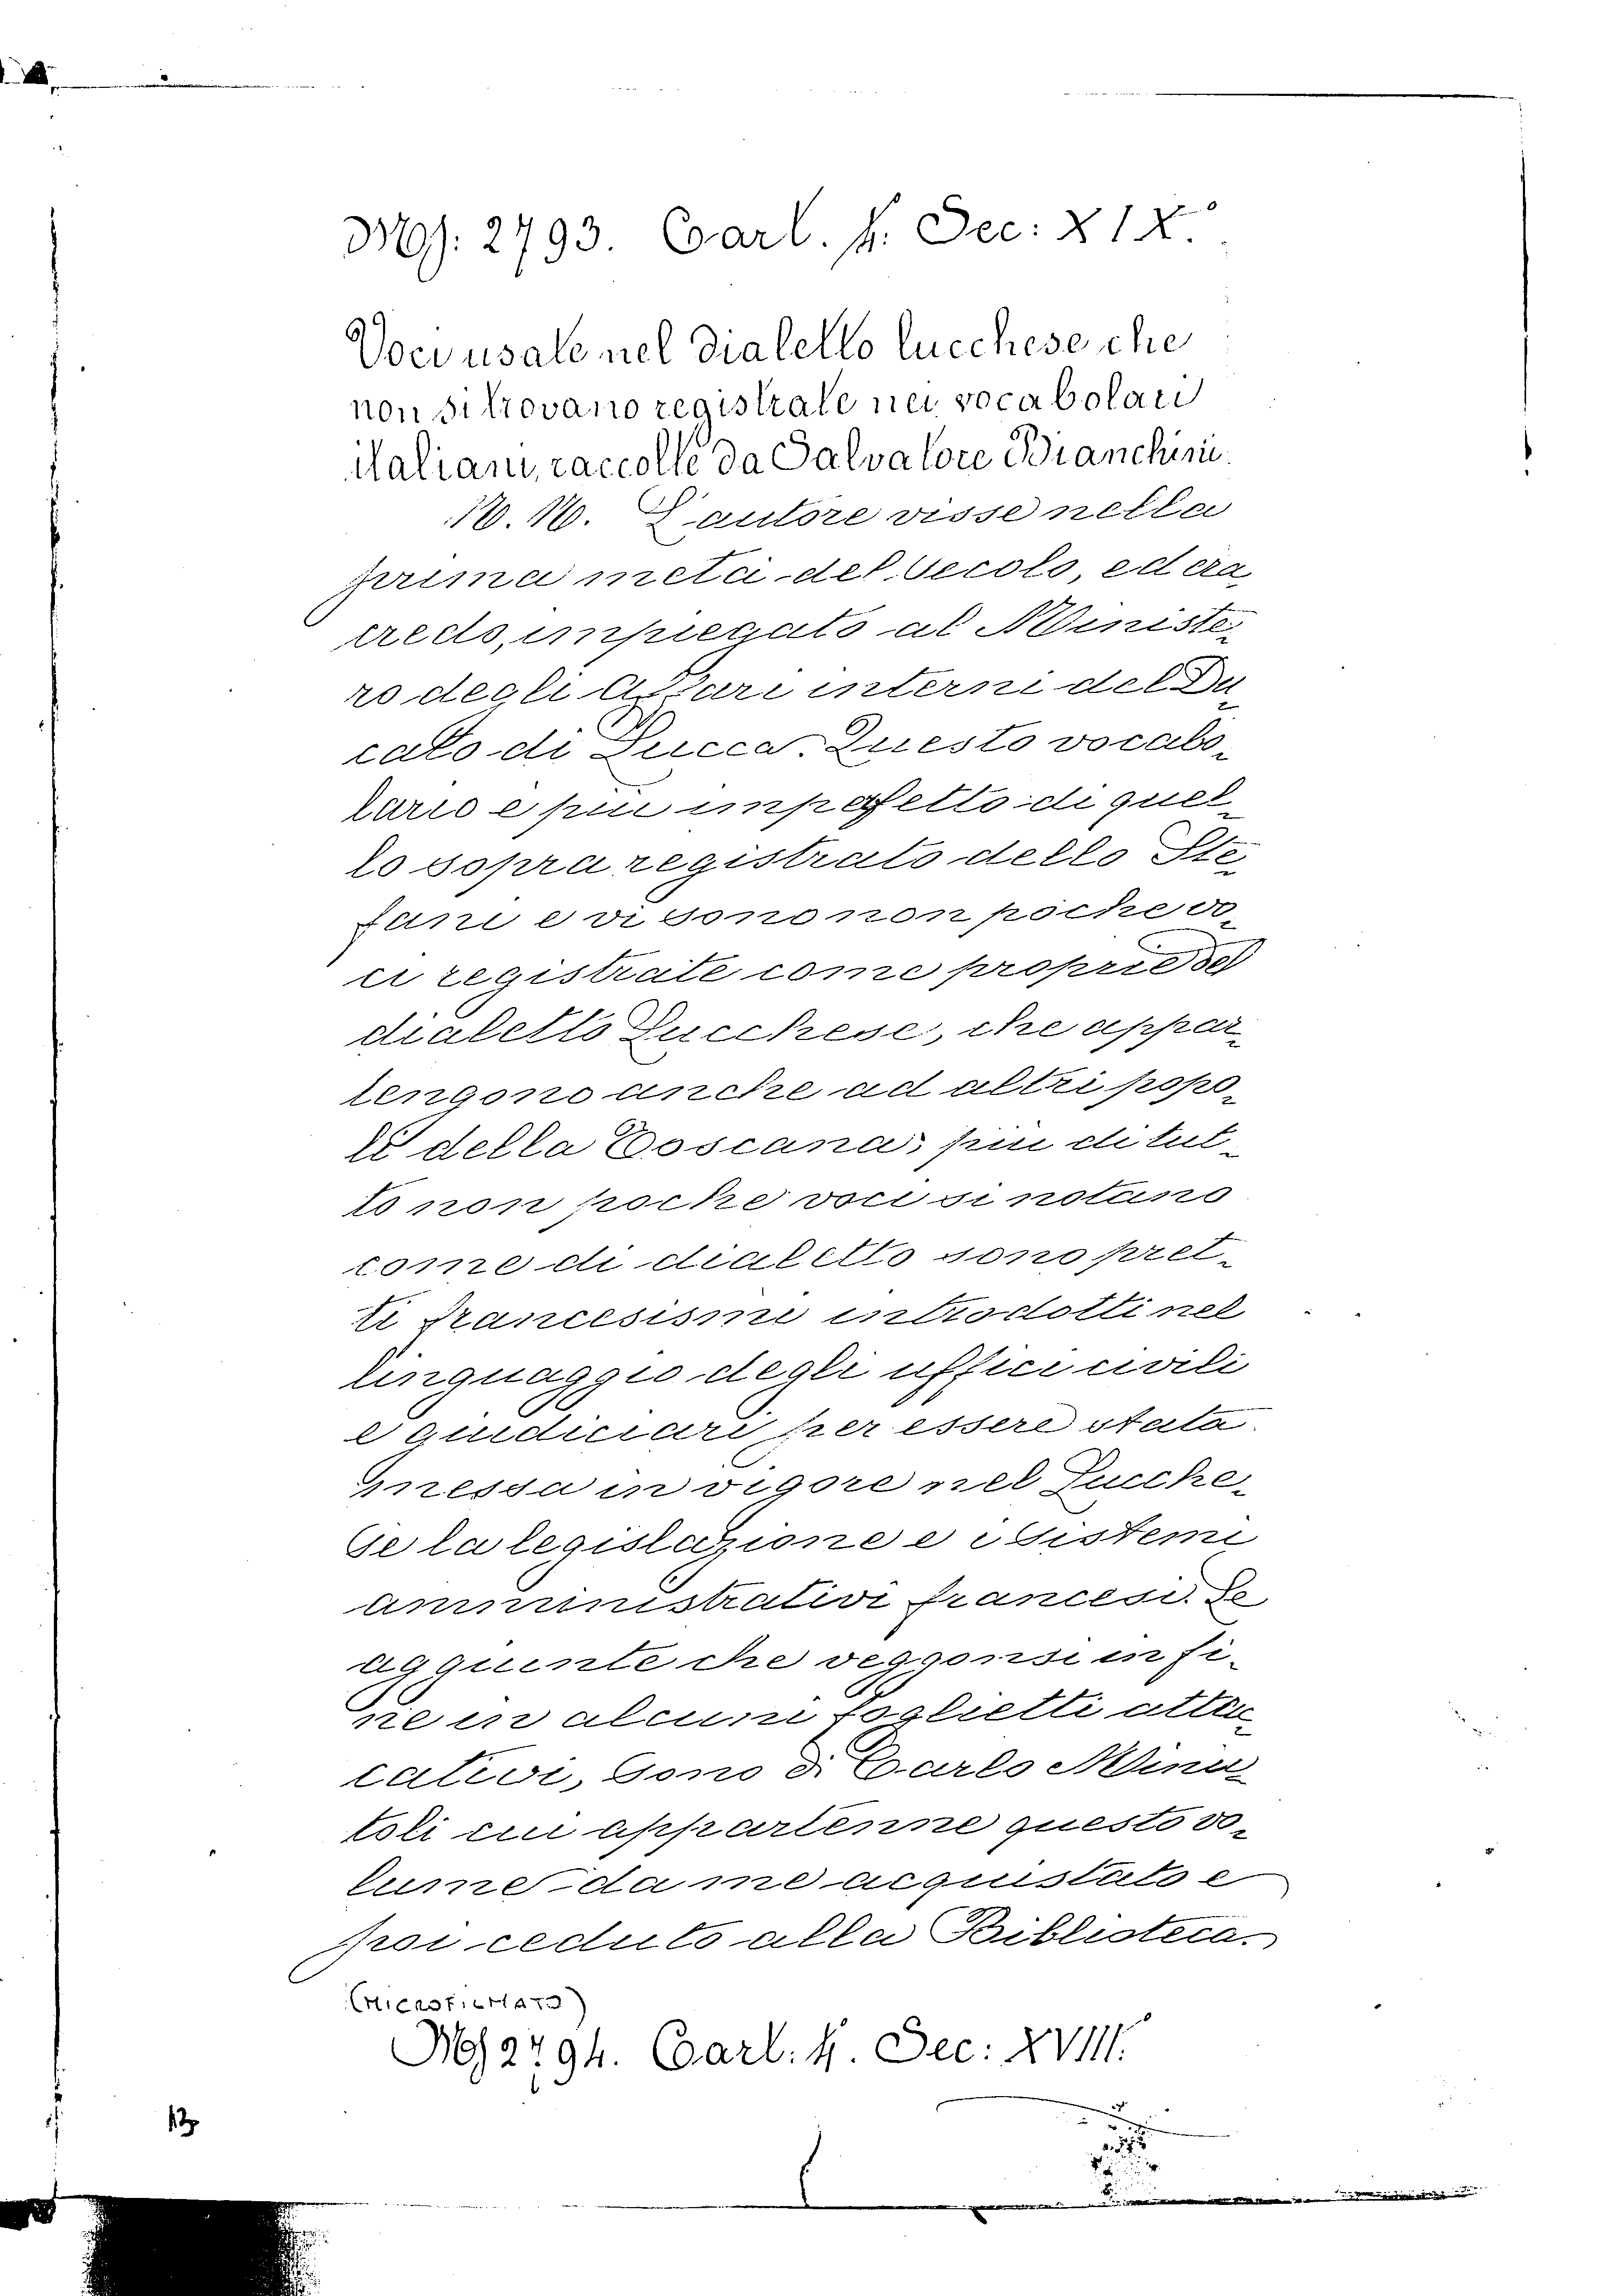 Ms. 2793. Cart. 4. Sec: XIX.°
Voci usate nel dialetto lucchese che
non si trovano registrate nei vocabolari
italiani, raccolte da Salvatore Bianchini.
N. N. L'autore visse nella
prima metà del Secolo, ed era,
credo, impiegato al Ministe-
ro degli Affari interni del Du-
cato di Lucca. Questo vocabo-
lario e più imperfetto di quel-
lo sopra registrato dello Ste-
fani e vi sono non poche vo-
ci registrate come proprie del
dialetto Lucchese, che appar-
tengono anche ad altri popo-
li della Toscana; più di tut-
to non poche voci si notano
come di dialetto sono pret-
ti francesismi introdotti nel
linguaggio degli uffici civili
e giudiciari per essere stata
messa in vigore nel Lucche-
se la legislazione e i Sistemi
amministrativi francesi. Le
aggiunte che veggonsi in fi-
ne in alcuni foglietti attac-
cativi, Sono di Carlo Minu-
toli cui appartenne questo vo-
lume da me acquistato e
poi ceduto alla Biblioteca.
(MICROFILMATO)
Ms 2794. Cart: 4. Sec: XVIII.